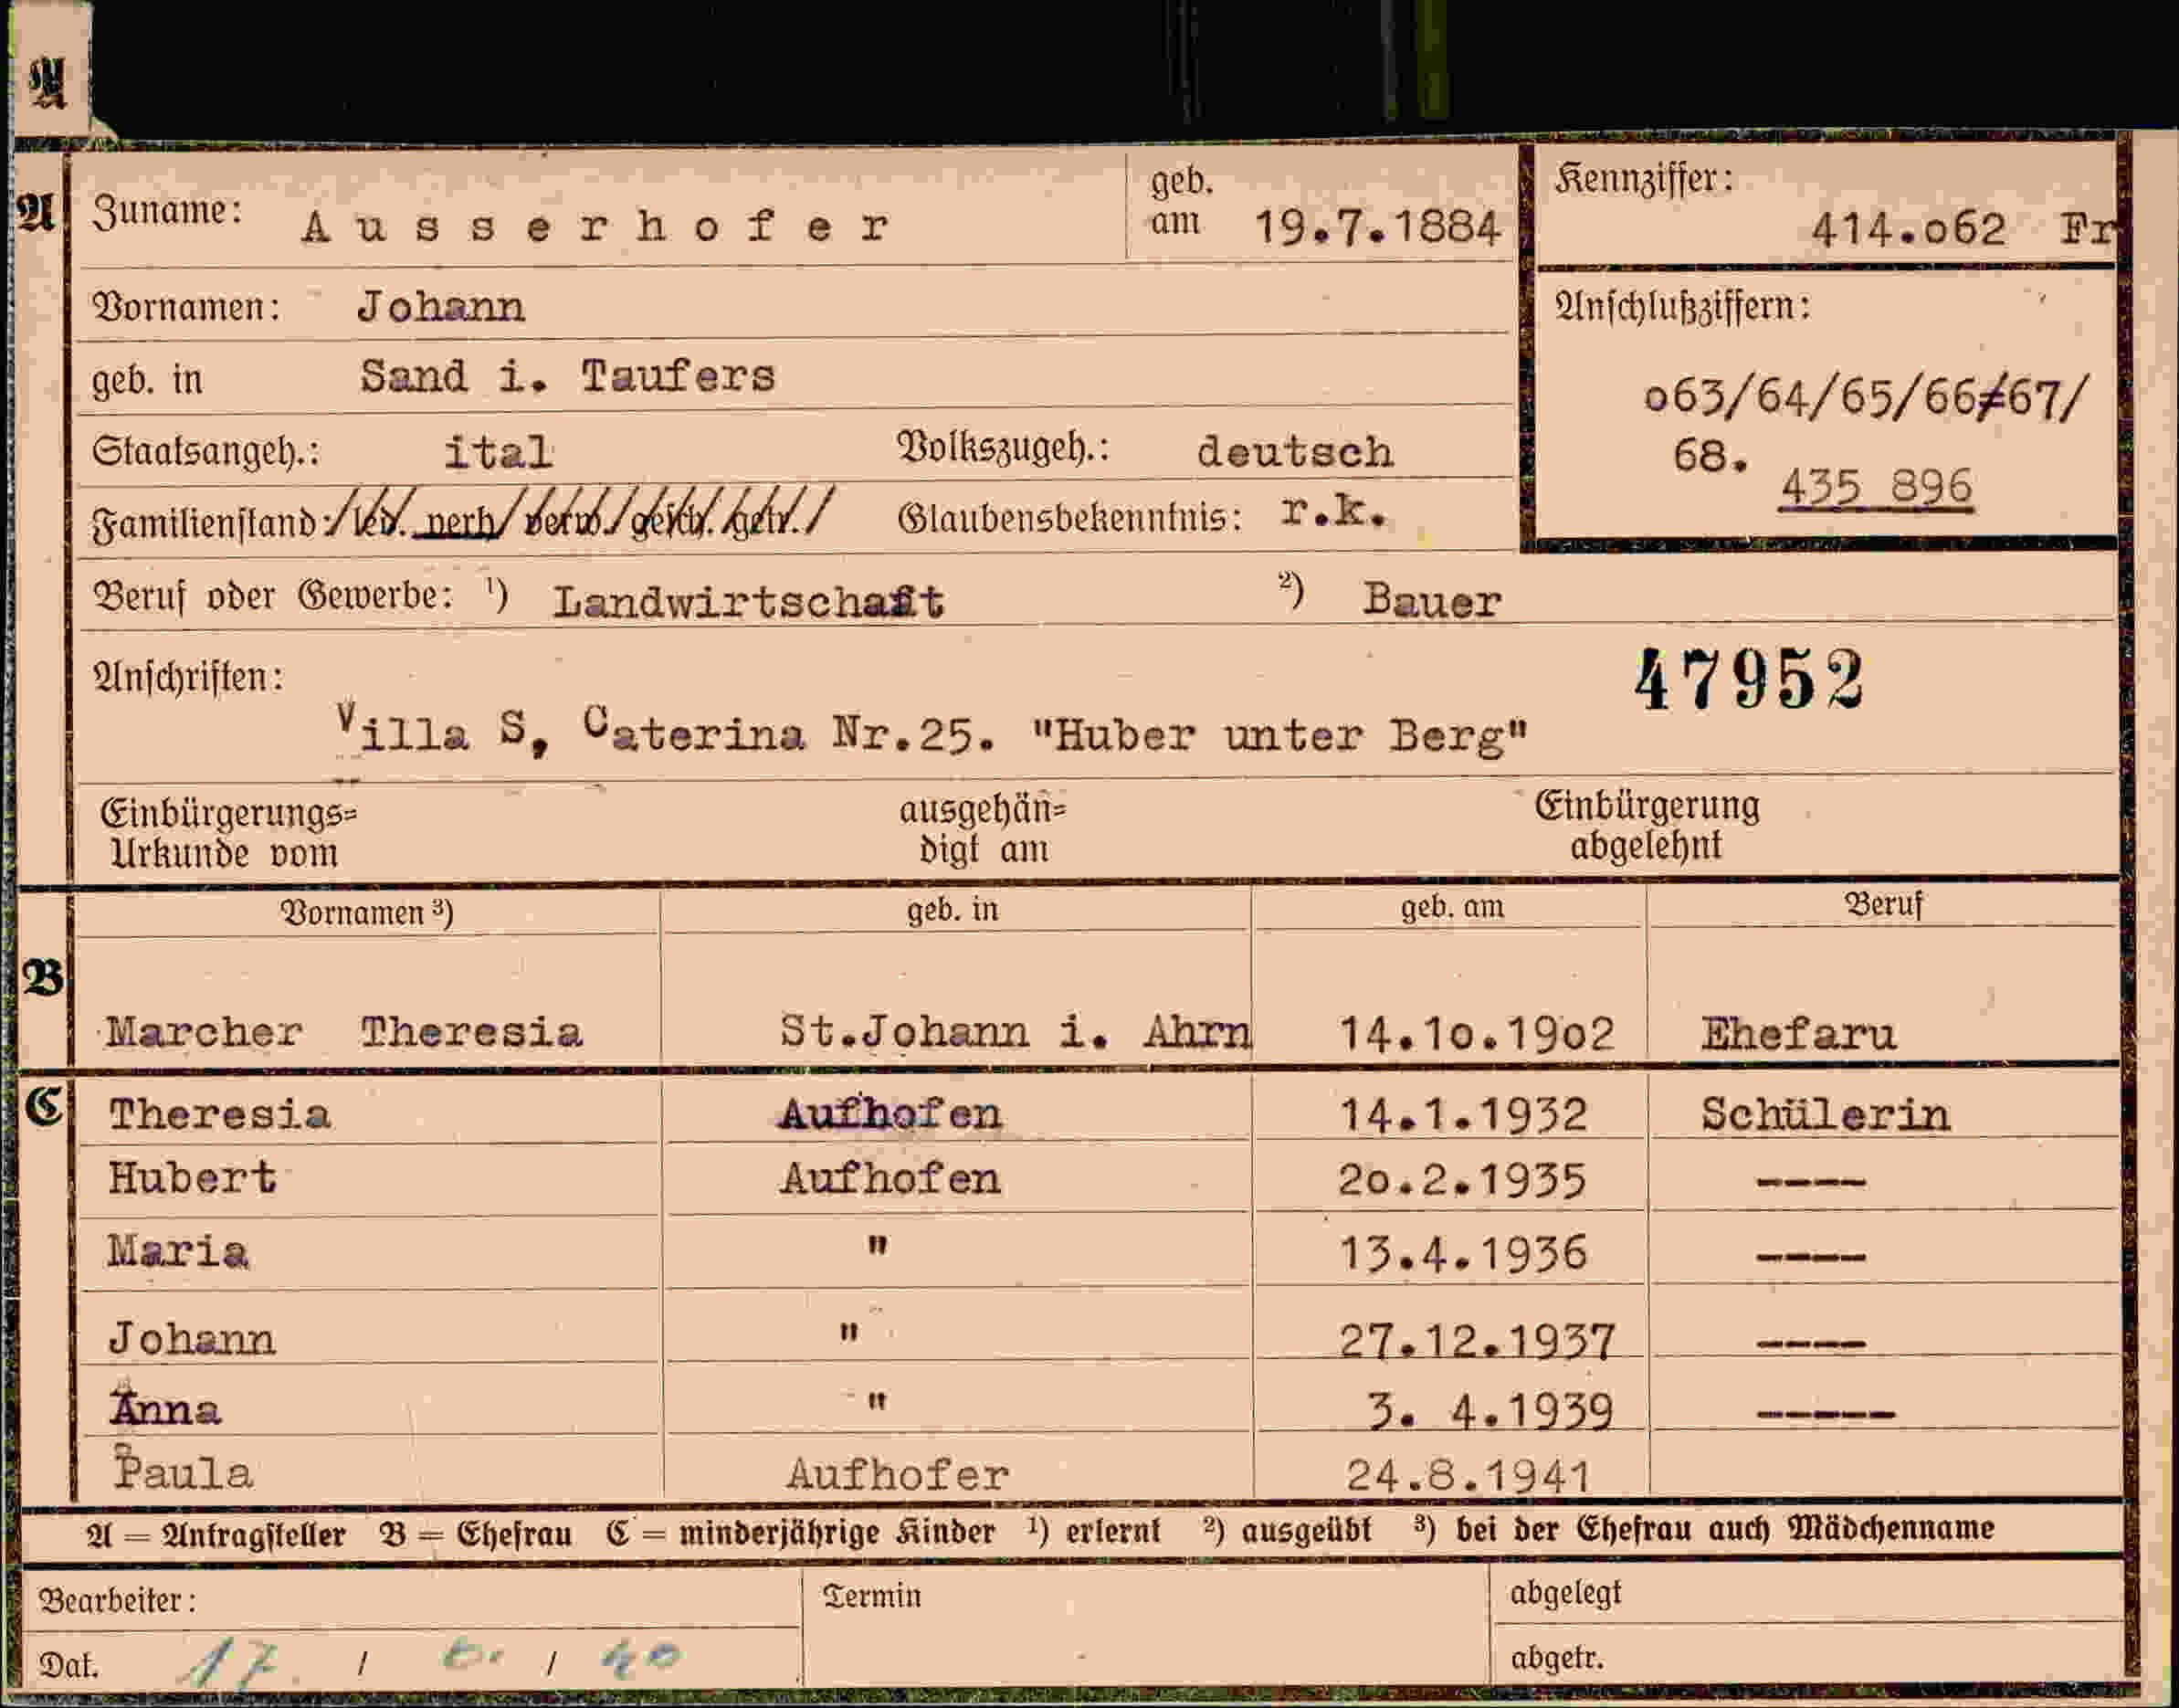 A
A Zuname: Ausserhofer geb. am 19.7.1884 Kennziffer: 414.o62 Fr
Vornamen: Johann Anschlußziffern:
geb. in Sand i. Taufers o63/64/65/66/67/
Staatsangeh.: ital Volkszugeh.: deutsch 68.
435 896
Familienstand: led. verh. verw. gesch. getr. Glaubensbekenntnis: r.k.
Beruf oder Gewerbe: 1) Landwirtschaft 2) Bauer
Anschriften: 47952
Villa S, Caterina Nr.25. "Huber unter Berg"
Einbürgerungs= ausgehän= Einbürgerung
Urkunde vom digt am abgelehnt
Vornamen 3) geb. in geb. am Beruf
B
Marcher Theresia St.Johann i. Ahrn 14.1o.19o2 Ehefaru
C Theresia Aufhofen 14.1.1932 Schülerin
Hubert Aufhofen 2o.2.1935 ----
Maria " 13.4.1936 ----
Johann " 27.12.1937 ----
Anna " 3. 4.1939 -----
Paula Aufhofer 24.8.1941
A = Antragsteller B = Ehefrau C = minderjährige Kinder 1) erlernt 2) ausgeübt 3) bei der Ehefrau auch Mädchenname
Bearbeiter: Termin abgelegt
Dat. 17. / 6. / 40 abgetr.